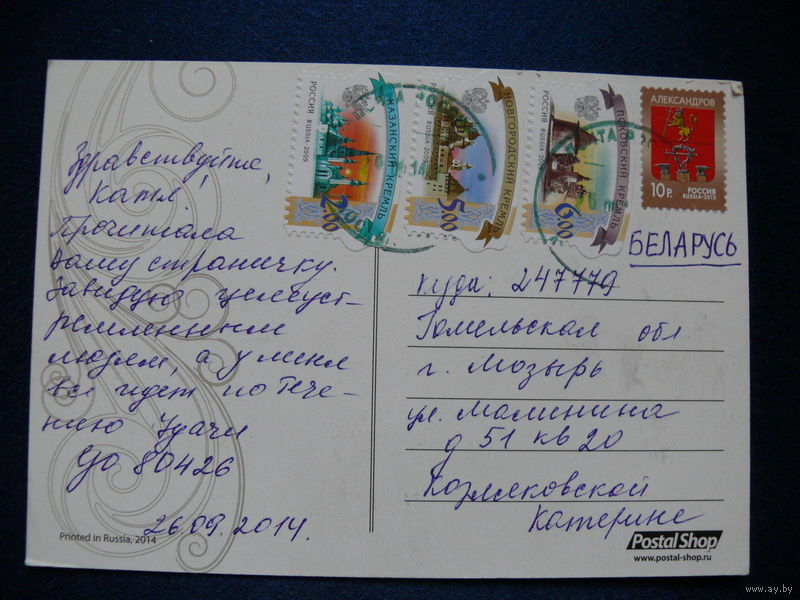 Здравствуйте,
Катя!
Прочитала
Вашу страничку.
Завидую целеуст-
ремленным
людям, а у меня
все идет по тече-
нию Удачи
УО 80426
26.09.2014.
Printed in Russia, 2014
РОССИЯ RUSSIA·2009
КАЗАНСКИЙ КРЕМЛЬ
2.00
РОССИЯ RUSSIA·2009
НОВГОРОДСКИЙ КРЕМЛЬ
5.00
РОССИЯ RUSSIA·2009
ПСКОВСКИЙ КРЕМЛЬ
6.00
АЛЕКСАНДРОВ
10 р. РОССИЯ
RUSSIA·2013
БЕЛАРУСЬ
куда: 247779
Гомельская обл
г. Мозырь
ул. Малинина
д 51 кв 20
Козляковской
Катерине
PostalShop
www.postal-shop.ru
www.ay.by